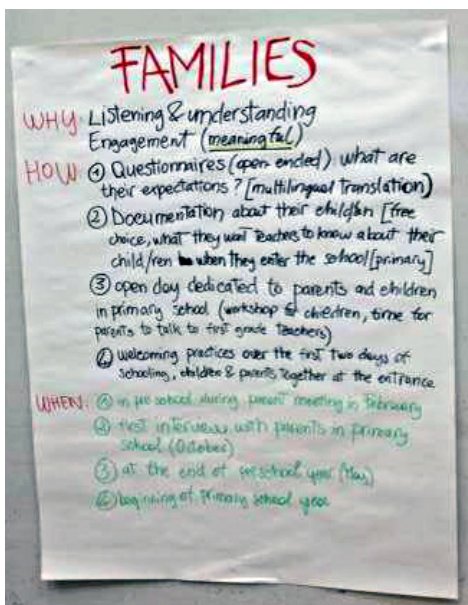 FAMILIES
WHY: Listening & understanding
Engagement (meaningful)
HOW: ① Questionnaires (open ended): what are
their expectations? [multilingual translation)
② Documentation about their children [free
choice, what they want teachers to know about their
child/ren when they enter the school [primary]
③ open day dedicated to parents and children
in primary school (workshop children, time for
parents to talk to first grade teachers)
④ welcoming practices over the first two days of
schooling, children & parents together at the entrance
WHEN: ① in pre school during parent meeting in february
first interview with parents in primary
school (October)
③ at the end of preschool year (May)
beginning of primary school year